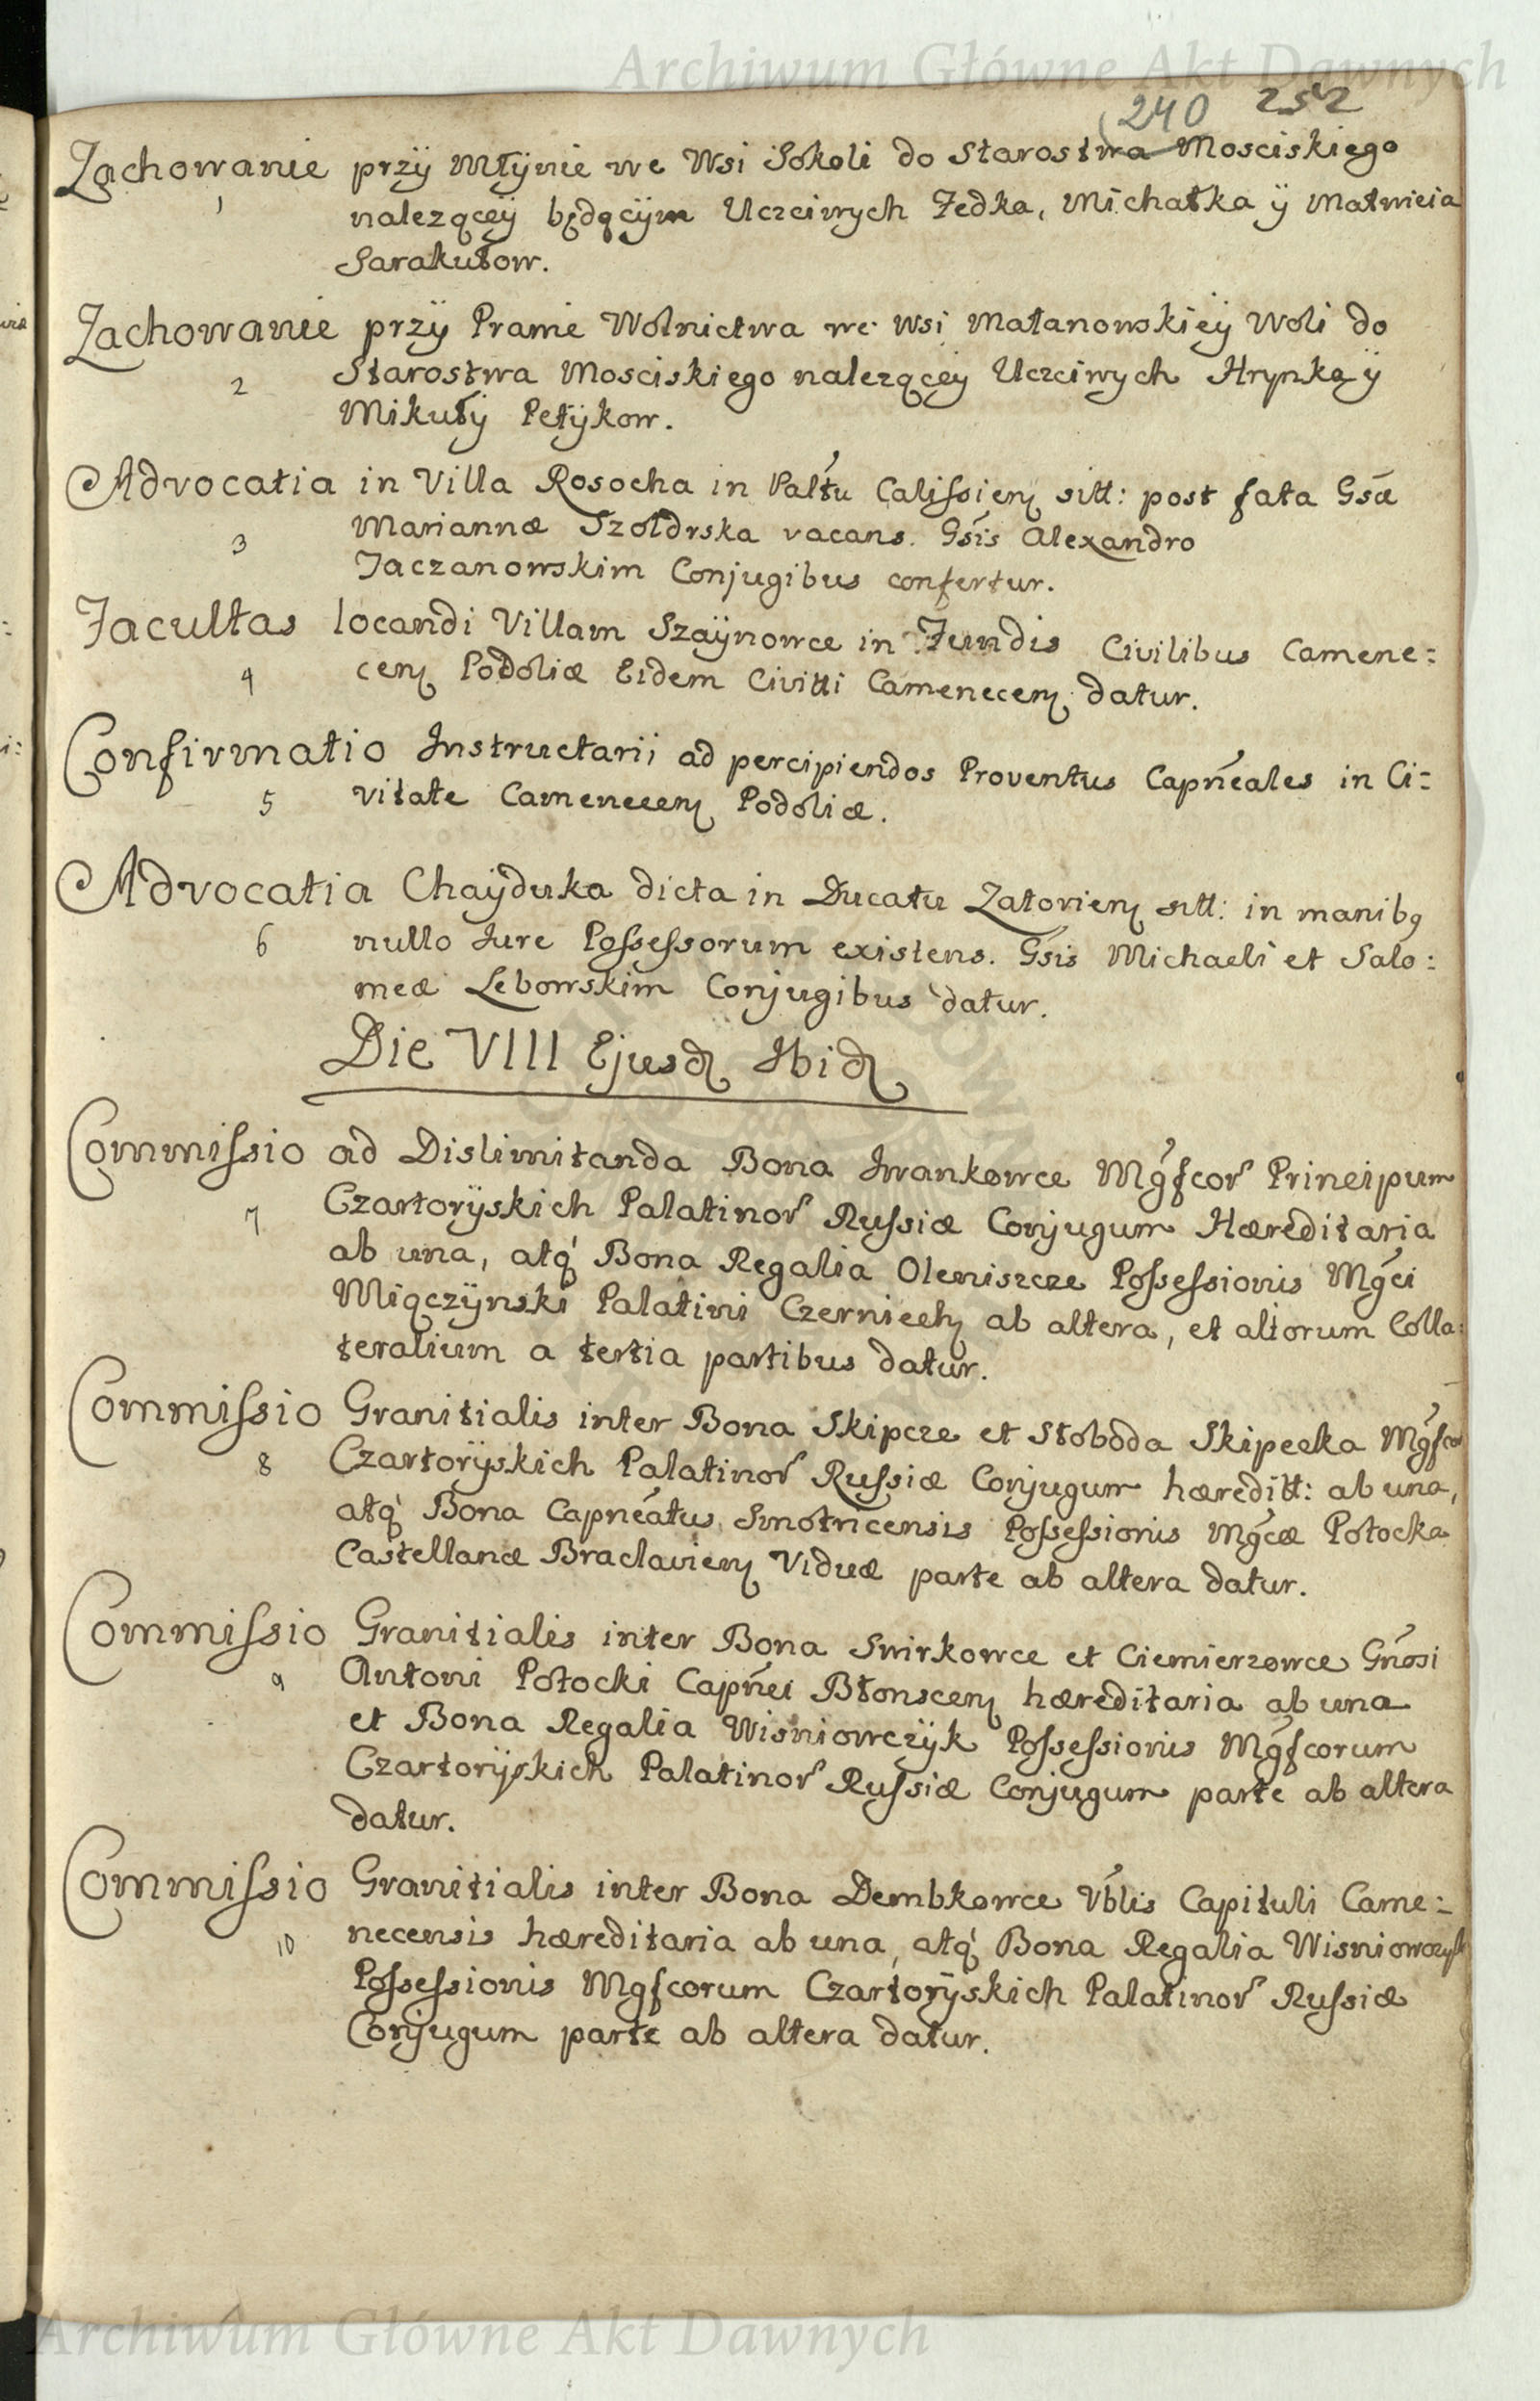 Archiwum Główne Akt Dawnych
240 252
Zachowanie przÿ Młÿnie we Wsi Sokoli do Starostwa Mosciskiego
1 nalezącéÿ będącÿm Uczciwych Fedka, Michałka ÿ Matwieia
Sarakułow.
Zachowanie przÿ Prawie Wolnictwa we Wsi Małanowskiéÿ Woli do
2 Starostwa Mosciskiego nalezącéÿ Uczciwych Hrynka ÿ
Mikułÿ Petÿkow.
Advocatia in Villa Rosocha in Palt̃u Calissien̄ sitt: post fata Gsæ
3 Mariannæ Szołdrska vacans. Gsis Alexandro
Jaczanowskim Conjugibus confertur.
Facultas locandi Villam Szaÿnowce in Fundis Civilibus Camene:
4 cen̄ Podoliæ Eidem Civitti Camenecen̄ datur.
Confirmatio Instructarii ad percipiendos Proventus Capn̄eales in Ci:
5 vitate Camenecen̄ Podoliæ.
Advocatia Chaÿduka dicta in Ducatu Zatorien̄ sitt: in manibꝯ
6 nullo Jure Possessorum existens. Gsis Michaeli et Salo:
meæ Lebowskim Conjugibus datur.
Die VIII Ejusd̄ Ibid̄
Commissio ad Dislimitanda Bona Iwankowce Mgfcor̃ Principum
7 Czartorÿskich Palatinor̃ Russiæ Conjugum Hæreditaria
ab una, atq́ Bona Regalia Oleniszcze Possessionis Mgci
Miączÿnski Palatini Czerniech̄ ab altera, et aliorum Colla:
teralium a tertia partibus datur.
Commissio Granitialis inter Bona Skipcze et Słoboda Skipecka Mgfcor̃
8 Czartorÿskich Palatinor̃ Russiæ Conjugum hæreditt: ab una,
atq́ Bona Capneatus Smotricensis Possessionis Mgcæ Potocka
Castellanæ Braclavien̄ Viduæ parte ab altera datur.
Commissio Granitialis inter Bona Swirkowce et Ciemierzowce Gnosi
9 Antoni Potocki Capnei Błonscen̄ hæreditaria ab una
et Bona Regalia Wisniowczÿk Possessionis Mgfcorum
Czartorÿskich Palatinor̃ Russiæ Conjugum parte ab altera
datur.
Commissio Granitialis inter Bona Dembkowce Vblis Capituli Came:
10 necensis hæreditaria ab una, atq́ Bona Regalia Wisniowczyk
Possessionis Mgfcorum Czartorÿskich Palatinor̃ Russiæ
Conjugum parte ab altera datur.
Archiwum Główne Akt Dawnych